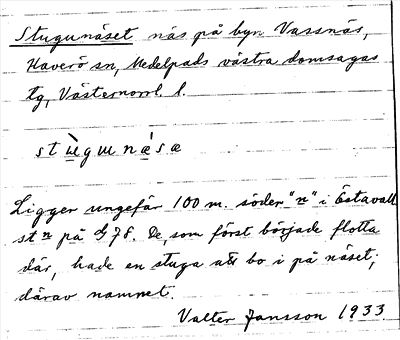 Stugunäset näs på byn Vassnäs,
Haverö sn, Medelpads västra domsagas
tg, Västernorrl. l.
stùgunä́sæ
Ligger ungefär 100 m. söder "n" i Östavall
st n på G78. De, som först började flotta
där, hade en stuga att bo i på näset;
därav namnet.
Valter Jansson 1933.